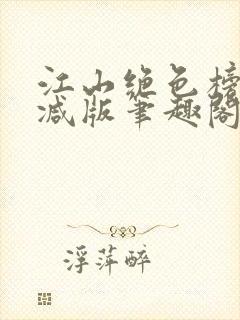 江山绝色榜
减版笔趣阁
浮萍醉